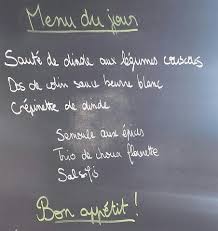 Menu du jour
Sauté de dinde aux légumes couscous
Dos de colin sauce beurre blanc
Crépinette de dinde
Semoule aux épices
Trio de choux fleurette
Salsifis
Bon appétit !